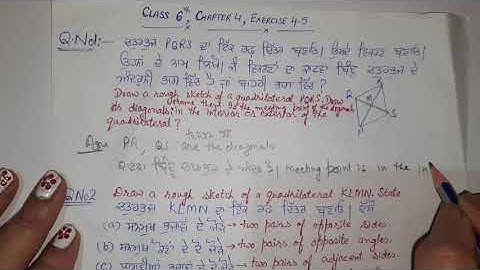 Class 6th, Chapter 4, Exercise 4.5
Q.No1:- ਚਤਰਭੁਜ PQRS ਦਾ ਇੱਕ ਰਫ਼ ਚਿੱਤਰ ਬਣਾਓ। ਉਸਦੇ ਵਿਕਰਣ ਬਣਾਓ।
ਉਹਨਾਂ ਦੇ ਨਾਮ ਲਿਖੋ। ਕੀ ਵਿਕਰਣਾਂ ਦਾ ਕਾਟਵਾਂ ਬਿੰਦੂ ਚਤਰਭੁਜ ਦੇ
ਅੰਦਰੂਨੀ ਭਾਗ ਵਿੱਚ ਹੈ ਜਾਂ ਬਾਹਰੀ ਭਾਗ ਵਿੱਚ ?
Draw a rough sketch of a quadrilateral PQRS. Draw
its diagonals. Name them. Is the meeting point of the diagonals
in the interior or exterior of the
quadrilateral?
Ans PR, QS are the diagonals
ਕਾਟਵਾਂ ਬਿੰਦੂ ਚਤਰਭੁਜ ਦੇ ਅੰਦਰ ਹੈ। meeting point is in the in
Q.No2 Draw a rough sketch of a quadrilateral KLMN. State
ਚਤਰਭੁਜ KLMN ਦਾ ਇੱਕ ਰਫ਼ ਚਿੱਤਰ ਬਣਾਓ। ਦੱਸੋ
(a) ਸਨਮੁੱਖ ਭੁਜਾਵਾਂ ਦੇ ਦੋ ਜੋੜੇ → two pairs of opposite sides.
(b) ਸਨਮੁੱਖ ਕੋਣਾਂ ਦੇ ਦੋ ਜੋੜੇ → two pairs of opposite angles.
(c) ਦੇ ਦੋ ਜੋੜੇ → two pairs of adjacent sides.